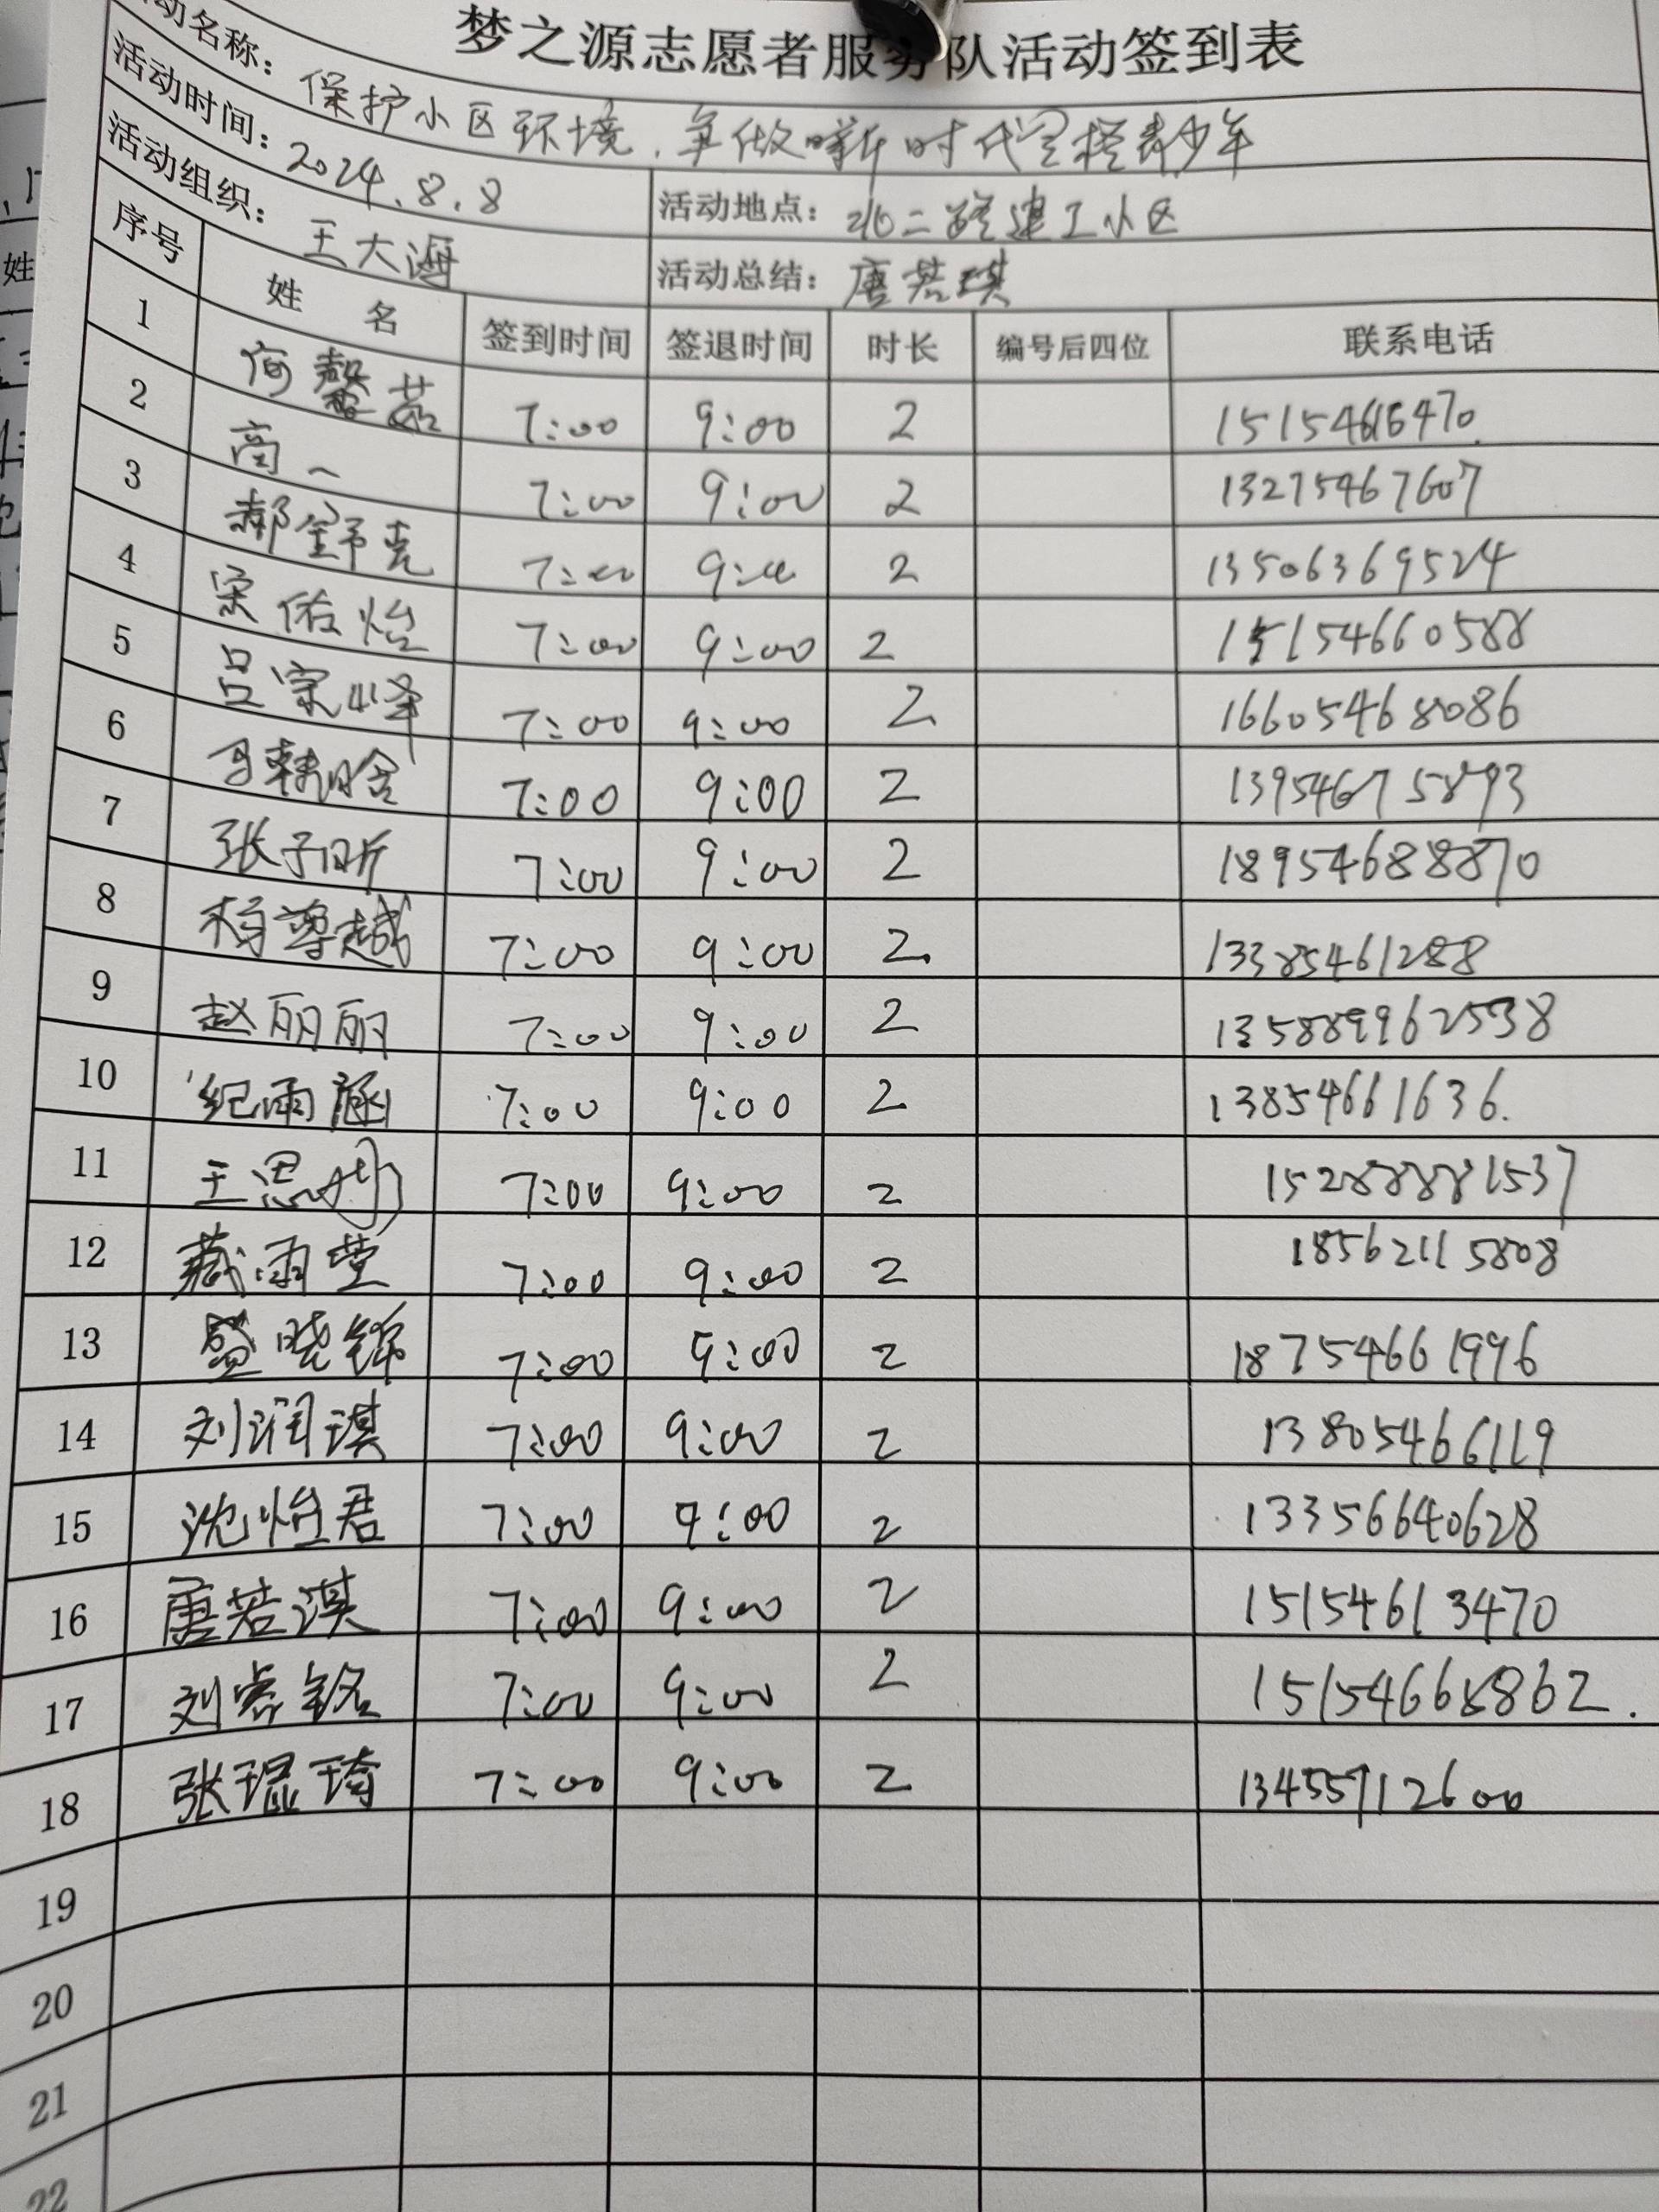 梦之源志愿者服务队活动签到表
动名称： 保护小区环境，争做新时代好青少年
活动时间： 2024.8.8 活动地点： 北二路建工小区
活动组织： 王大海 活动总结： 唐若琪
序号 姓 名 签到时间 签退时间 时长 编号后四位 联系电话
1 何馨茹 7:00 9:00 2
2 高一 7:00 9:00 2 13275467607
3 郝舒亮 7:00 9:00 2 13506369524
4 宋佑怡 7:00 9:00 2 15154660588
5 吕宗峰 7:00 9:00 2 16605468086
6 7:00 9:00 2 13954675893
7 张子昕 7:00 9:00 2 18954688870
8 杨尊越 7:00 9:00 2. 13385461288
9 赵丽丽 7:00 9:00 2 135889962538
10 纪雨涵 7:00 9:00 2 13854661636.
11 王思彤 7:00 9:00 2 15288881537
12 臧雨萱 7:00 9:00 2 18562115808
13 盛晓锦 7:00 9:00 2 18754661996
14 刘润琪 7:00 9:00 2 13805466119
15 沈怡君 7:00 9:00 2 13356640628
16 唐若淇 7:00 9:00 2 15154613470
17 刘睿铭 7:00 9:00 2 15154668862.
18 张琨琦 7:00 9:00 2 13455712600
19
20
21
22